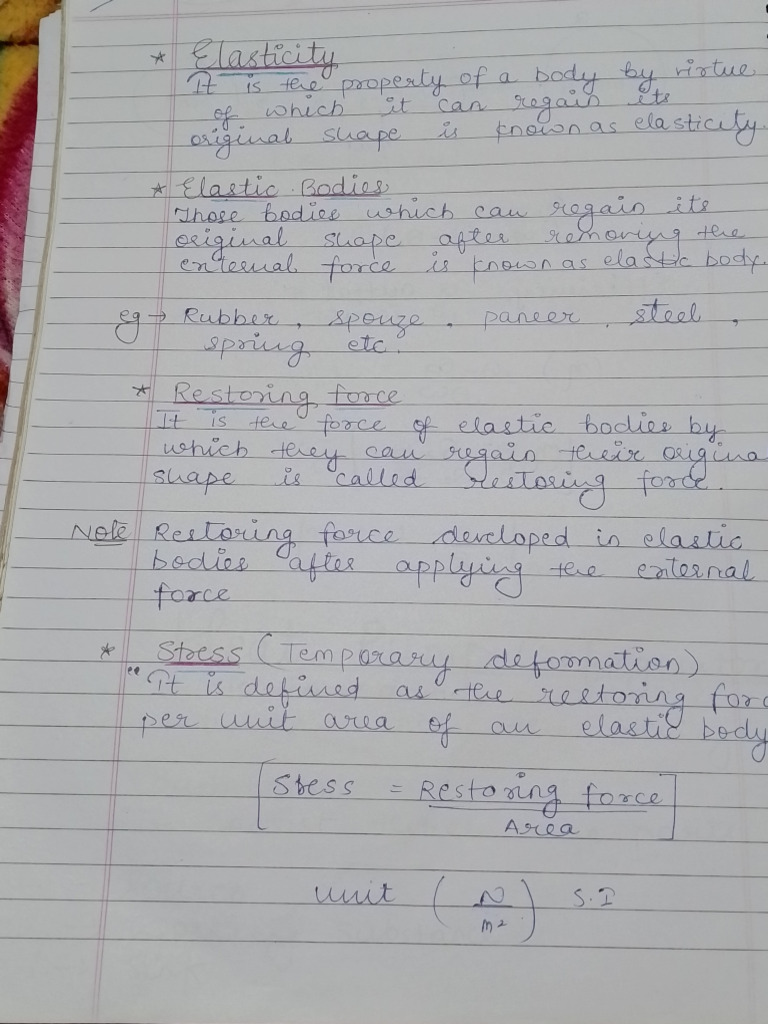 * Elasticity
It is the property of a body by virtue
of which it can regain its
original shape is known as elasticity.
* Elastic Bodies
Those bodies which can regain its
original shape after removing the
external force is known as elastic body.
eg → Rubber, sponze, paneer, steel,
spring etc.
* Restoring force
It is the force of elastic bodies by
which they can regain their origina
shape is called restoring force.
Note Restoring force developed in elastic
bodies after applying the external
force
* Stress (Temporary deformation)
"It is defined as the restoring forc
per unit area of an elastic body
Stress = Restoring force
Area
unit (N/m²) S.I